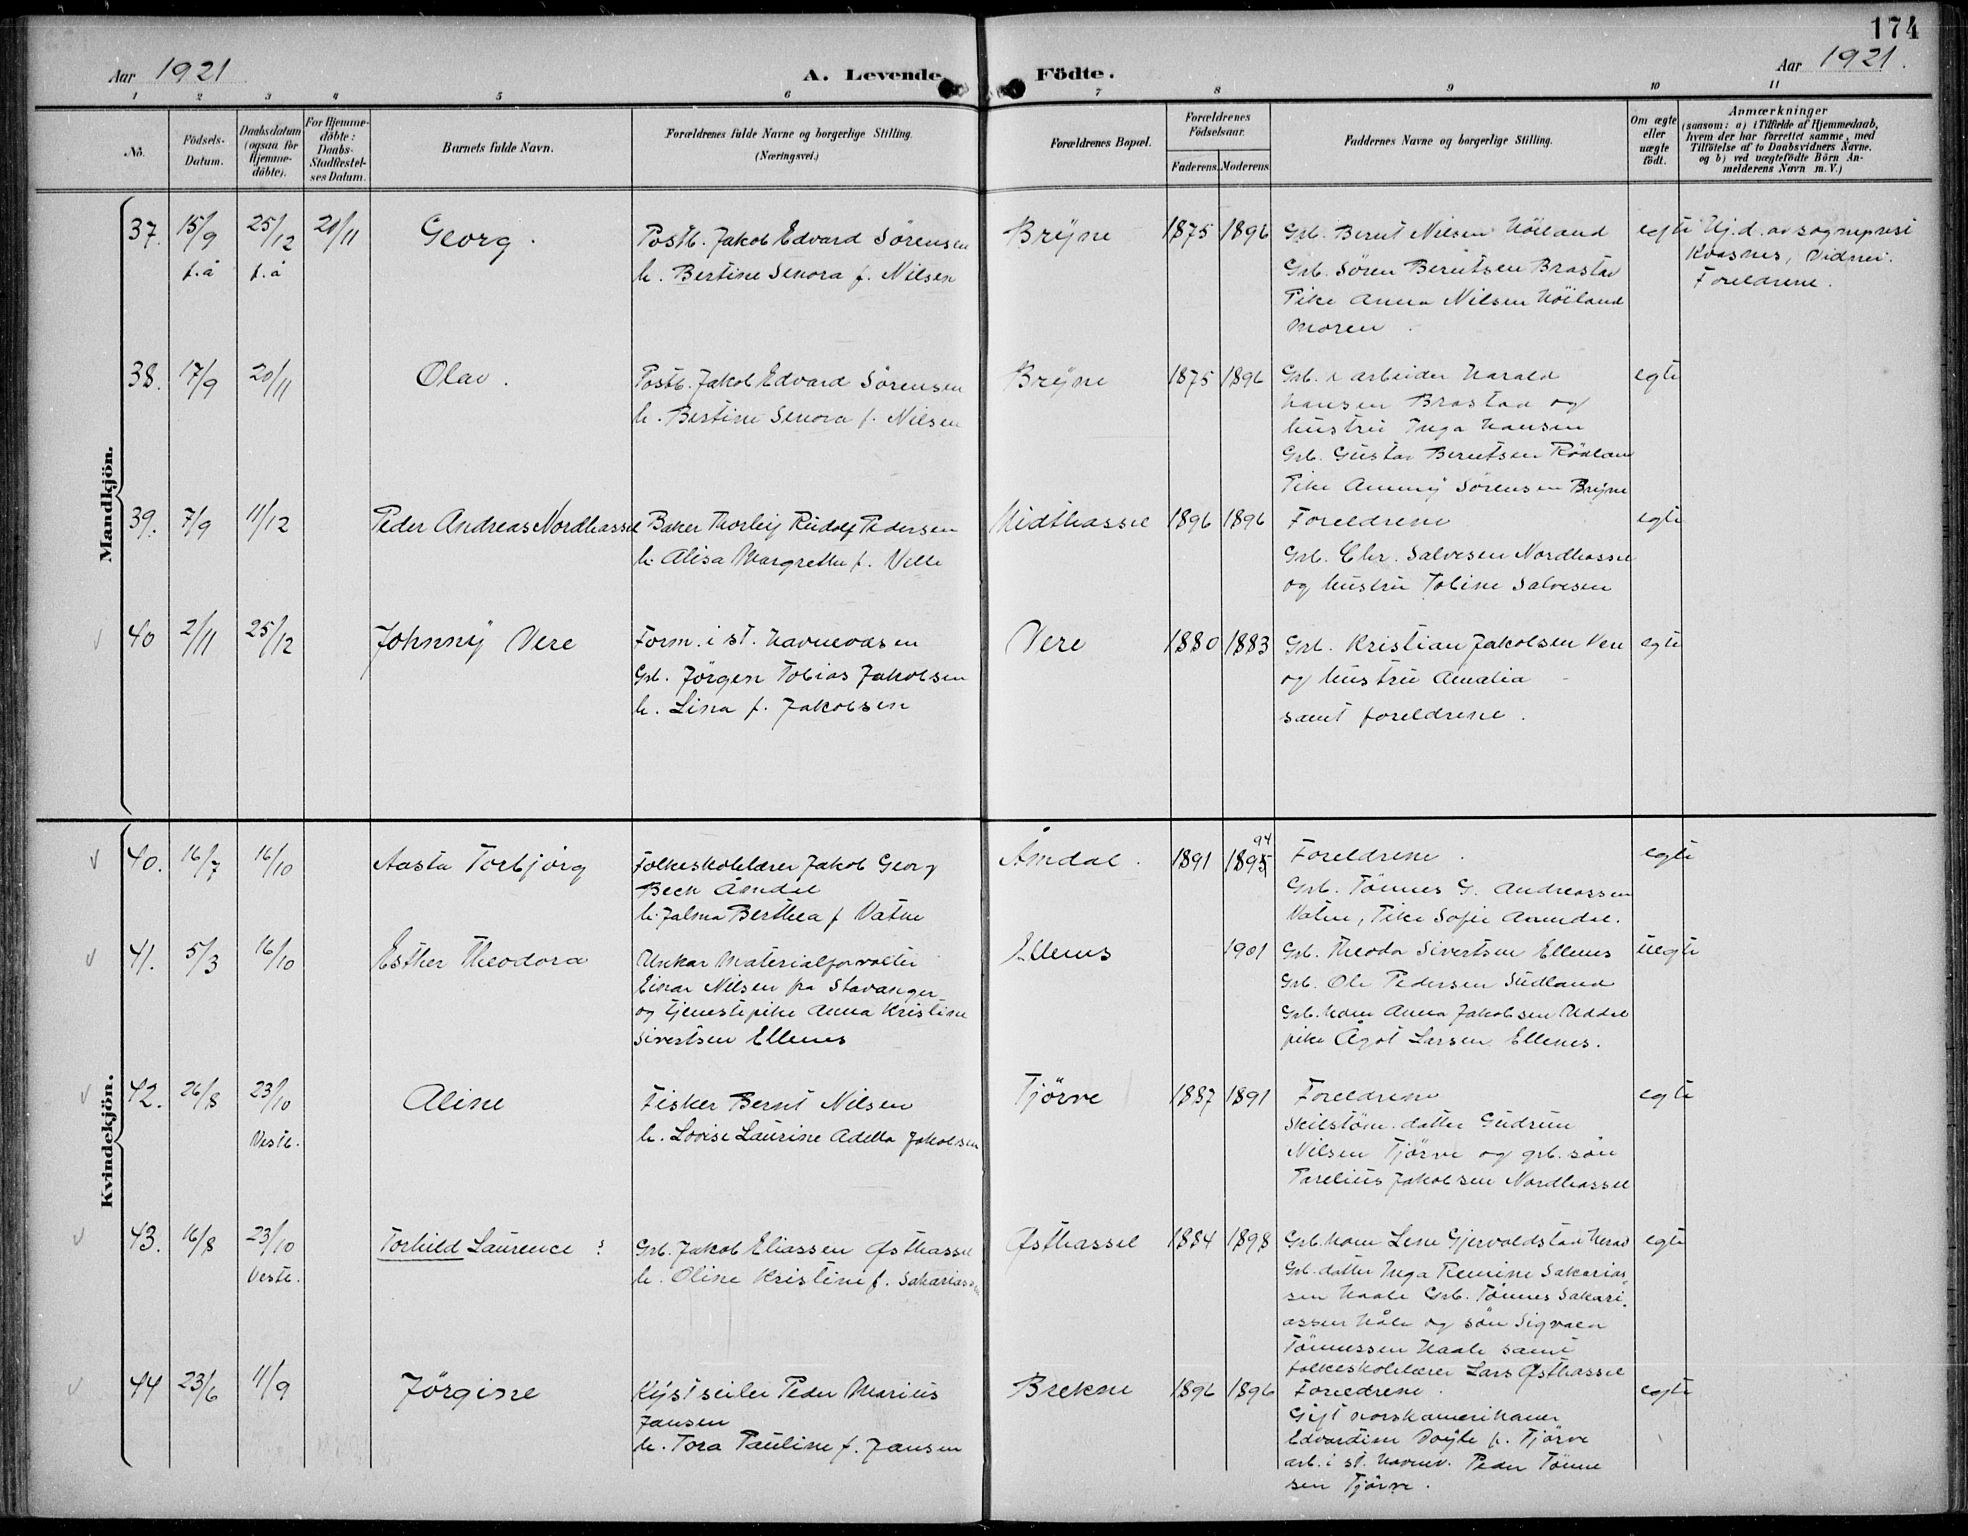 174
Aar 1921
A. Levende Födte.
Aar 1921.
1 2 3 4 5 6 7 8 9 10 11
No.
Födsels-Datum.
Daabsdatum (ogsaa for Hjemme-döbte).
For Hjemme-döbte: Daabs-Stadfæstel-ses Datum.
Barnets fulde Navn.
Forældrenes fulde Navne og borgerlige Stilling.
(Næringsvei.)
Forældrenes Bopæl.
Forældrenes Födselsaar.
Faderens. Moderens.
Faddernes Navne og borgerlige Stilling.
Om ægte eller uægte födt.
Anmærkninger
(saasom: a) i Tilfælde af Hjemmedaab,
hvem der har forrettet samme, med
Tilföielse af to Daabsvidners Navne.
og b) ved uægtefödte Börn An-
melderens Navn m. V.)
Mandkjön.
37. 15/9 f.å 25/12 f.å 20/11 Georg.
Postb. Jakob Edvard Sörensen
h. Bertine Senora f. Nilsen
Bryne 1875 1896
Grb. Bernt Nilsen Höiland
Grb. Sören Berntsen Brastad
Pike Anna Nilsen Höiland
Moren
egte
Hj.d. av sogneprest
Kvasnes, Vidner:
Foreldrene.
38. 17/9 20/11 Olav.
Postb. Jakob Edvard Sörensen
h. Bertine Senora f. Nilsen
Bryne 1875 1896
Grb. & arbeider Harald
Hansen Brastad og
hustru Inga Hansen
Grb. Gustav Berntsen Rödland
Pike Anny Sörensen Bryne
egte
39. 7/9 11/12 Peder Andreas Nordhassel
Baker Thorleif Rudolf Pedersen
h. Alisa Margrethe f. Velle
Midthassel 1896 1896
Foreldrene
Grb. Chr. Salvesen Nordhassel
og hustru Tobine Salvesen
egte
40 2/11 25/12 Johnny Vere
Form. i st. havnevæsen
Grb. Jörgen Tobias Jakobsen
h. Lina f. Jakobsen
Vere 1880 1883
Grb. Kristian Jakobsen Vere
og hustru Amalia
samt foreldrene.
egte
Kvindekjön.
40. 16/7 16/10 Aasta Torbjörg
Folkeskolelærer Jakob Georg
Beck Åmdal
h. Jalma Berthea f. Vatne
Åmdal. 1891 1895 94
Foreldrene.
Grb. Tönnes G. Andreassen
Vatne, Pike Sofie Aamdal.
egte
41. 5/3 16/10 Esther Theodora
Unkar Materialforvalter
Einar Nilsen fra Stavanger
og tjenestepike Anna Kristine
Sivertsen Ellenes
Ellenes 1901
Grb. Theodor Sivertsen Ellenes
Grb. Ole Pedersen Sudland
Grb. kone Anna Jakobsen Uddal
pike Ågot Larsen Ellenes.
uegte
42. 26/8 23/10 Vestb. Aline
Fisker Bernt Nilsen
h. Lovise Laurine Adella Jakobsen
Tjörve 1887 1891
Foreldrene
Skilstöm. datter Gudrun
Nilsen Tjörve og grb. sön
Parelius Jakobsen Nordhassel
egte
43. 16/8 23/10 Vestb. Torhild Laurence
Grb. Jakob Eliassen Østhassel
h. Oline Kristine f. Sakariassen
Østhassel 1884 1898
Grb. kone Lene Gjervoldstad Herad
Grb. datter Inga Remine Sakarias
sen Haale Grb. Tönnes Sakari
assen Håle og sön Sigvald
Tönnessen Haale samt
folkeskolelærer Lars Østhassel
egte
44 23/6 11/9 Jörgine
Kystseiler Peder Marius
Jansen
h. Tora Pauline f. Jansen
Brekne 1896 1896
Foreldrene.
Gift norskamerikaner
Edvardine Doyle f. Tjörve
arb. i st. havnev. Peder Tönne
sen Tjörve.
egte